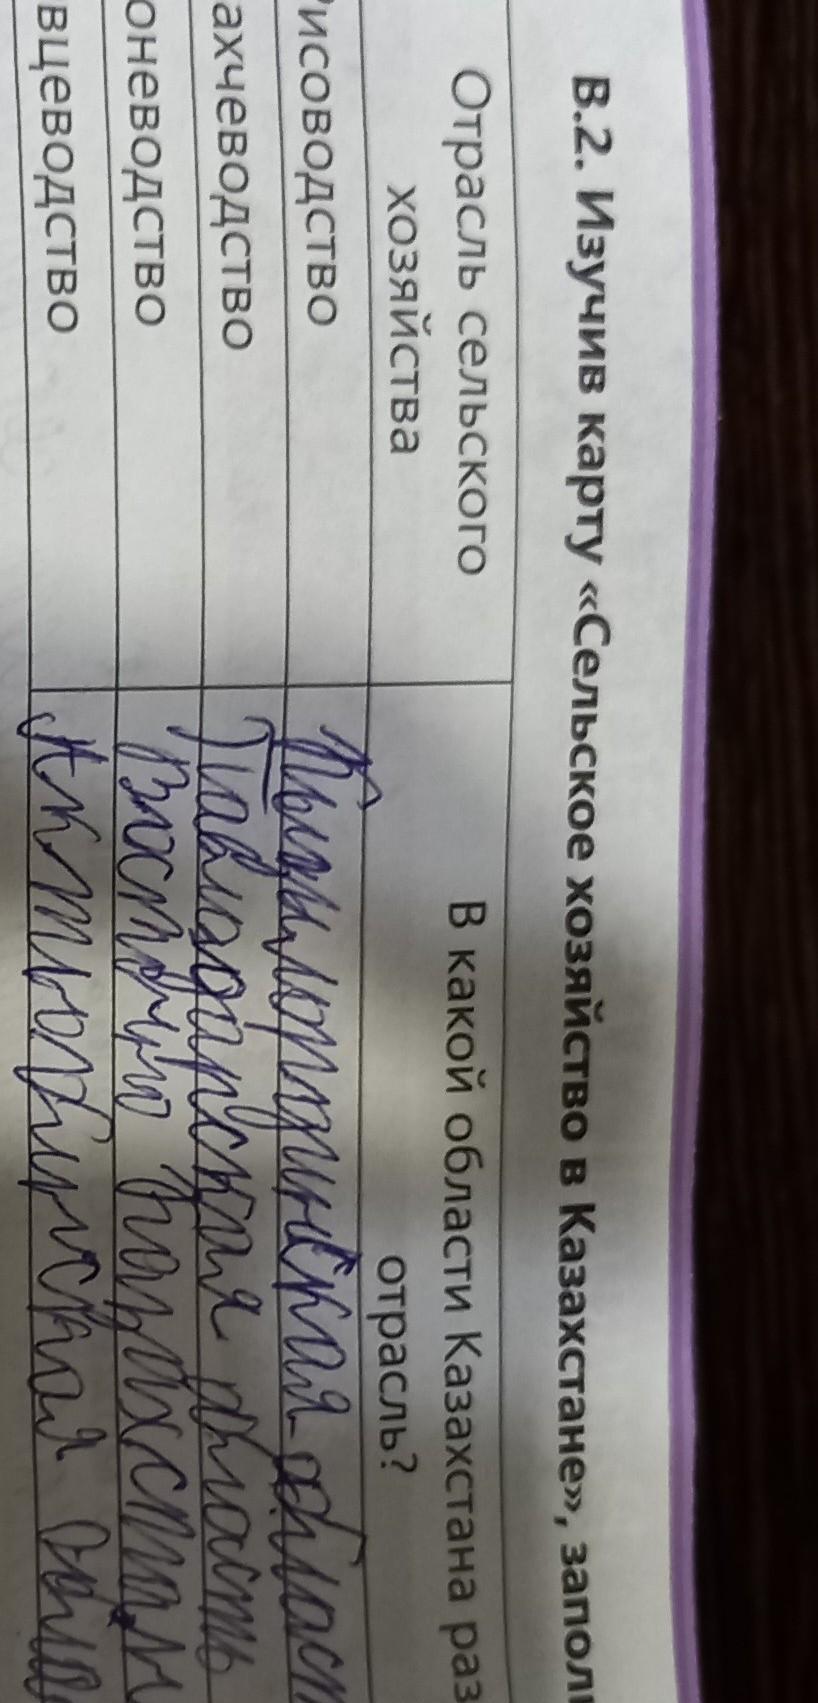 В.2. Изучив карту «Сельское хозяйство в Казахстане», запол
Отрасль сельского хозяйства
В какой области Казахстана раз
отрасль?
исоводство Кызылординская област
ахчеводство Павлодарская область
оневодство Восточно Казахстан
вцеводство Актюбинская обла